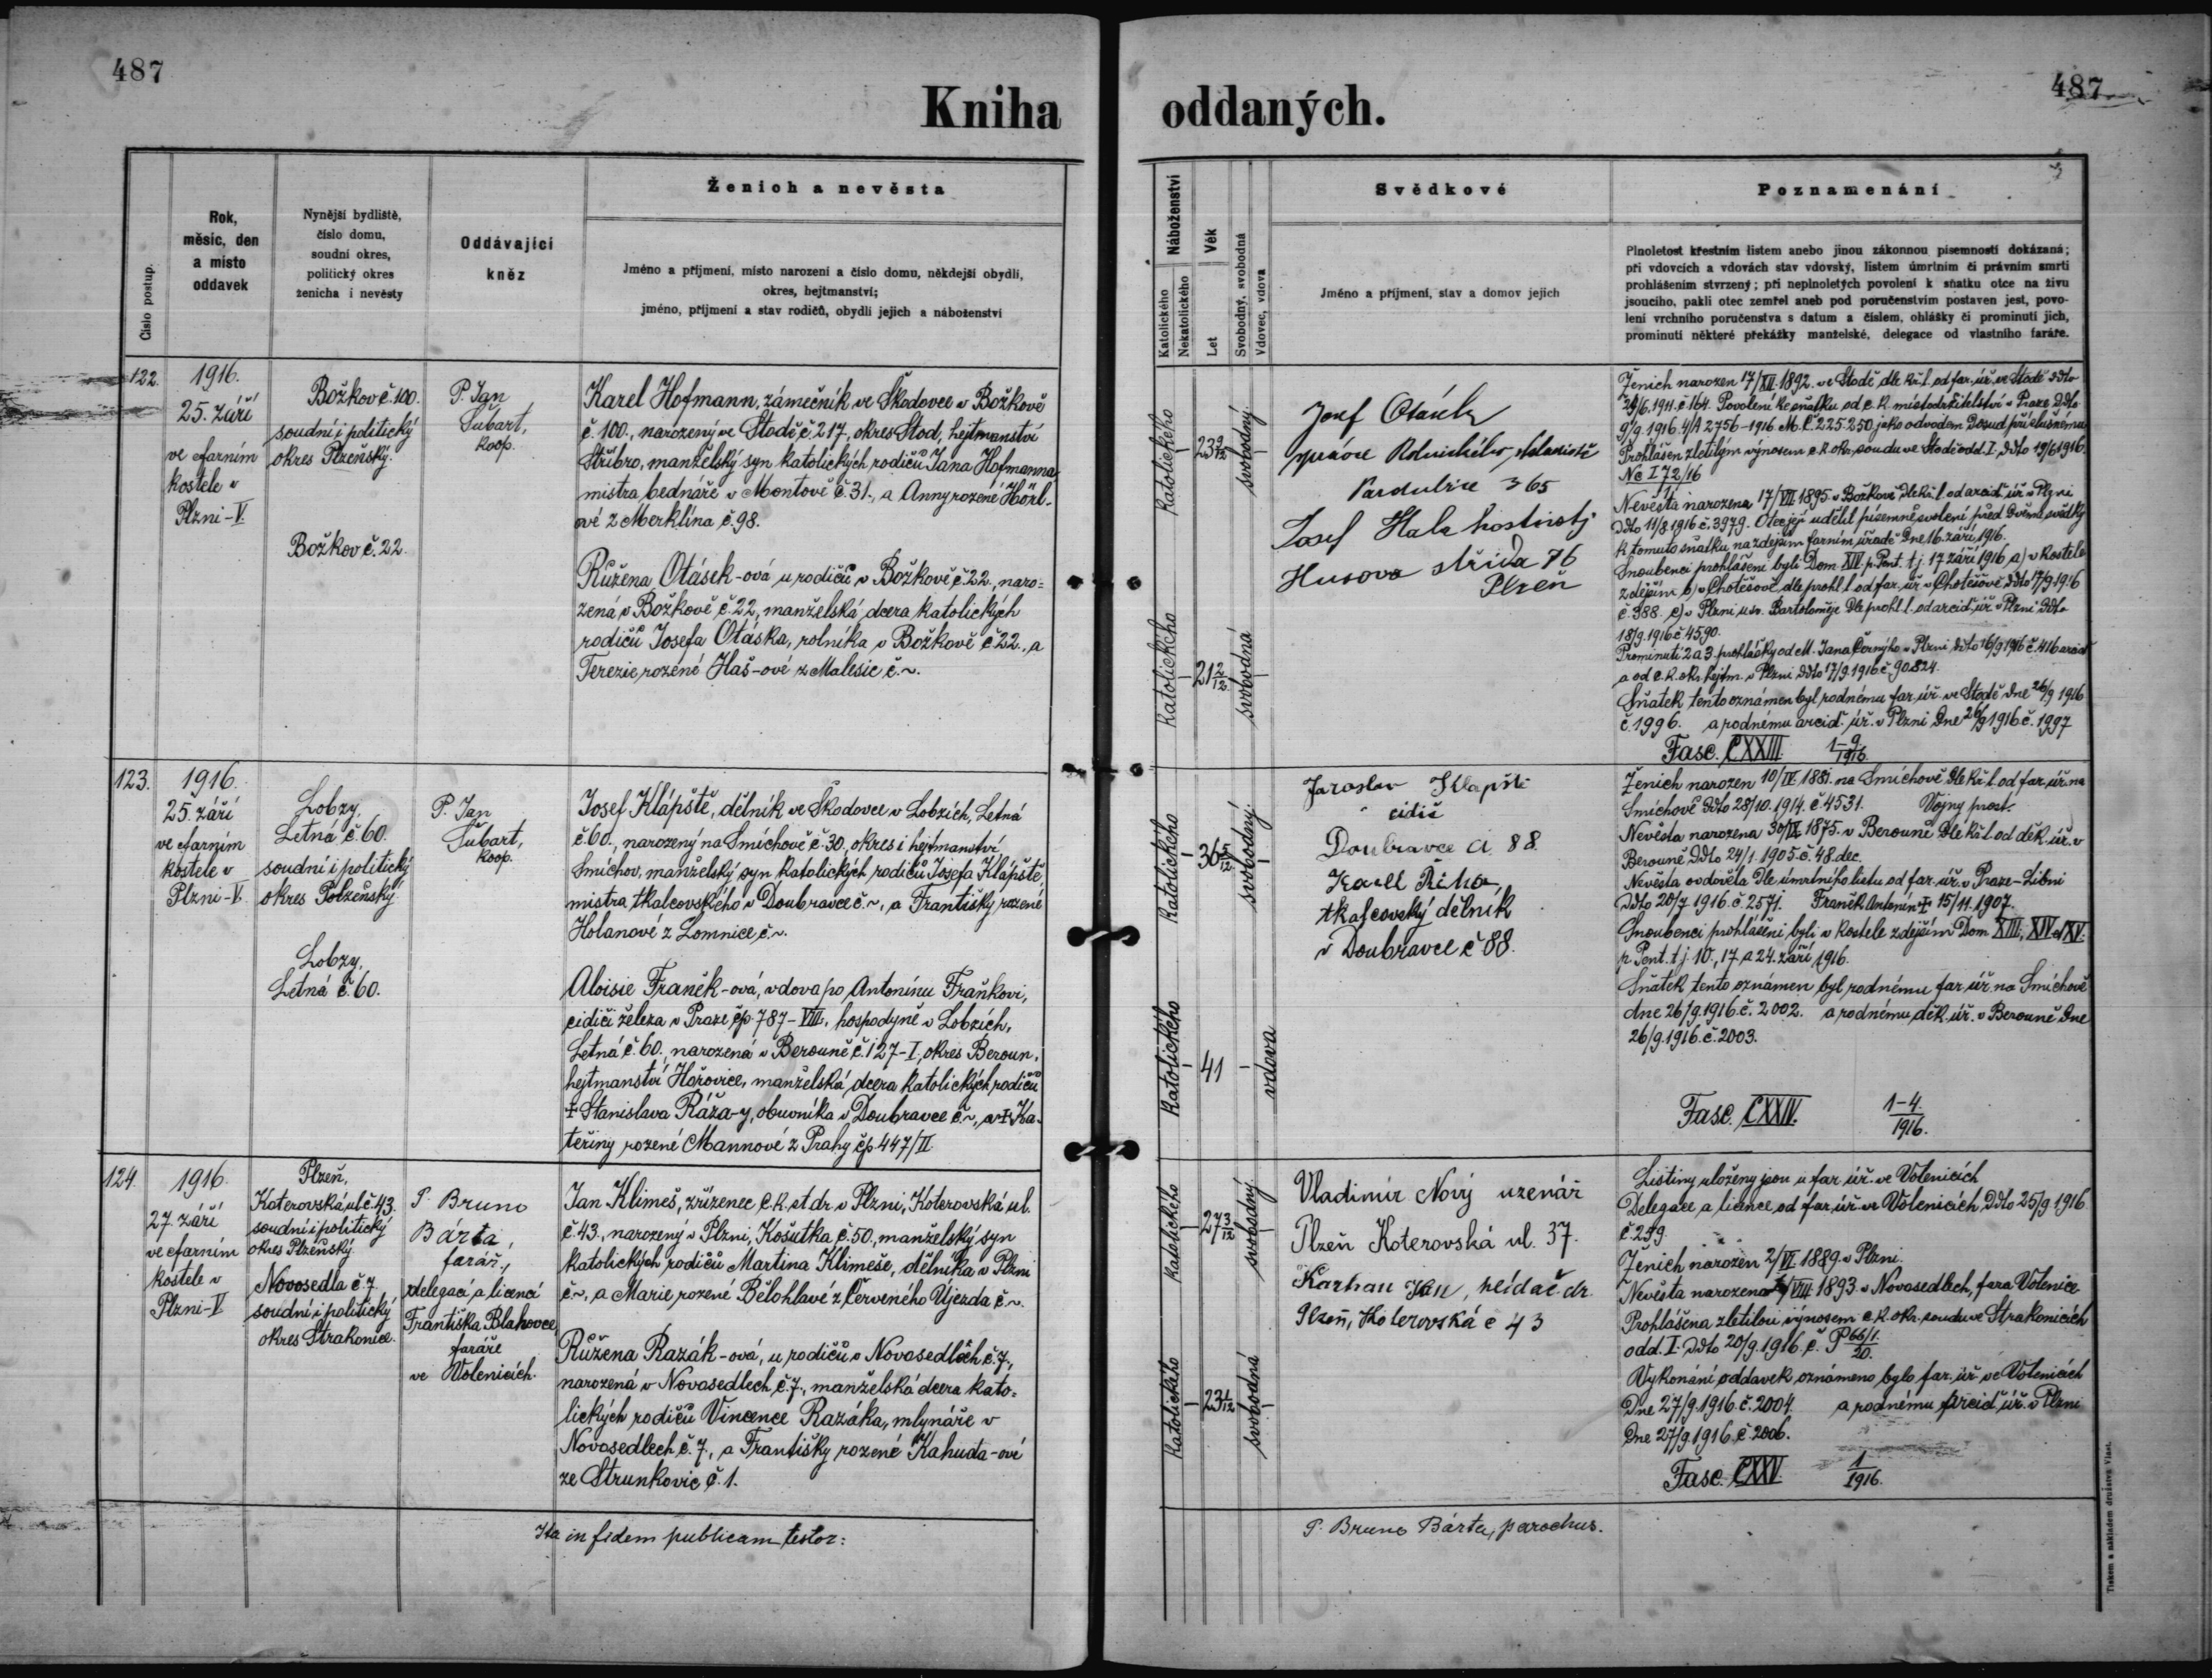 487
Kniha
Číslo postup.
Rok,
měsíc, den
a místo
oddavek
Nynější bydliště,
číslo domu,
soudní okres,
politický okres
ženicha i nevěsty
Oddávající
kněz
Ženich a nevěsta
Jméno a příjmení, místo narození a číslo domu, někdejší obydlí,
okres, hejtmanství;
jméno, příjmení a stav rodičů, obydlí jejich a náboženství
122.
1916.
25. září
ve farním
kostele v
Plzni-V.
Božkov č. 100.
soudní i politický
okres Plzeňský.
Božkov č. 22.
P. Jan
Šubart,
koop.
Karel Hofmann, zámečník ve Škodovce v Božkově
č. 100., narozený ve Stodě č. 217, okres Stod, hejtmanství
Stříbro, manželský syn katolických rodičů Jana Hofmanna,
mistra bednáře v Mantově č. 31., a Anny rozené Hörl-
ové z Merklína č. 98.
Růžena Otásek-ová u rodičů v Božkově č. 22., naro-
zená v Božkově č. 22, manželská dcera katolických
rodičů Josefa Otáska, rolníka v Božkově č. 22., a
Terezie rozené Haš-ové z Malesic č. ~.
123.
1916.
25. září
ve farním
kostele v
Plzni-V.
Lobzy,
Letná č. 60.
soudní i politický
okres Polzeňský.
Lobzy,
Letná č. 60.
P. Jan
Šubart,
koop.
Josef Klápště, dělník ve Škodovce v Lobzích, Letná
č. 60., narozený na Smíchově č. 30., okres i hejtmanství
Smíchov, manželský syn katolických rodičů Josefa Klápště,
mistra tkalcovského v Doubravce č. ~, a Františky rozené
Holanové z Lomnice č. ~.
Aloisie Franěk-ová, vdova po Antonínu Fraňkovi,
cidiči železa v Praze čp. 787-VIII., hospodyně v Lobzích,
Letná č. 60., narozená v Berouně č. 127-I, okres Beroun,
hejtmanství Hořovice, manželská dcera katolických rodičů
† Stanislava Ráža-y, obuvníka v Doubravce č. ~, a † Ka-
teřiny rozené Mannové z Prahy čp. 447/II
124.
1916.
27. září
ve farním
kostele v
Plzni-V
Plzeň,
Koterovská ul. č. 43.
soudní i politický
okres Plzeňský.
Novosedla č. 7.
soudní i politický
okres Strakonice.
P. Bruno
Bárta,
farář,
delegací a licencí
Františka Blahovce,
faráře
ve Volenicích.
Jan Klimeš, zřízenec c. k. st. dr. v Plzni, Koterovská ul.
č. 43., narozený v Plzni, Košutka č. 50., manželský syn
katolických rodičů Martina Klimeše, dělníka v Plzni
č. ~, a Marie rozené Bělohlavé z Červeného Újezda č. ~.
Růžena Razák-ová, u rodičů v Novosedlech č. 7.,
narozená v Novosedlech č. 7., manželská dcera kato-
lických rodičů Vincence Razáka, mlynáře v
Novosedlech č. 7., a Františky rozené Kahuda-ové
ze Strunkovic č. 1.
Ita in fidem publicam testor:
487
oddaných.
Náboženství
Katolického
Nekatolického
Věk
Let
Svobodný, svobodná
Vdovec, vdova
Svědkové
Jméno a příjmení, stav a domov jejich
Poznamenání
Plnoletost křestním listem anebo jinou zákonnou písemností dokázaná;
při vdovcích a vdovách stav vdovský, listem úmrtním či právním smrti
prohlášením stvrzený; při neplnoletých povolení k sňatku otce na živu
jsoucího, pakli otec zemřel aneb pod poručenstvím postaven jest, povo-
lení vrchního poručenstva s datum a číslem, ohlášky či prominutí jich,
prominutí některé překážky manželské, delegace od vlastního faráře.
katolického
23 9/12
svobodný
katolického
21 2/12
svobodná
Josef Otásek
správce Rolnického skladiště
Pardubice 365
Josef Hala hostinský
Husova třída 76
Plzeň
Ženich narozen 17/XII. 1892. ve Stodě dle kř. l. od far. úř. ve Stodě ddto
29/6. 1911. č. 164. Povolení ke sňatku od c. k. místodržitelství v Praze ddto
9/9. 1916. 4/A 2756-1916 M. č. 225.250 jako odvodem posud příslušnému.
Prohlášen zletilým výnosem c. k. okr. soudu ve Stodě odd. I. ddto 19/6 1916.
Nc I 72/16
Nevěsta narozena 17/VII. 1895 v Božkově dle kř. l. od arcid. úř. v Plzni
ddto 11/8 1916 č. 3979. Otec její udělil písemně svolení před dvěma svědky
k tomuto sňatku na zdejším farním úřadě dne 16. září 1916.
Snoubenci prohlášeni byli Dom. XIV. p. Pent. t. j. 17. září 1916 a) v kostele
zdejším b) v Chotěšově dle prohl. l. od far. úř. v Chotěšově ddto 17/9 1916
č. 388. c) v Plzni u sv. Bartoloměje dle prohl. l. od arcid. úř. v Plzni ddto
18/9. 1916 č. 4590.
Prominutí 2 a 3. prohlášky od M. Jana Černýho v Plzni ddto 16/9 1916 č. 416 arcid.
a od c. k. okr. hejtm. v Plzni ddto 17/9. 1916 č. 90.824.
Sňatek tento oznámen byl rodnému far. úř. ve Stodě dne 26/9 1916
č. 1996. a rodnému arcid. úř. v Plzni dne 26/9 1916 č. 1997
Fasc. CXXIII 1-9/1916.
katolického
svobodný
katolického
41
vdova
Jaroslav Klapště
cidič
Doubravce či. 88.
Karel Říha,
tkalcovský dělník
v Doubravce č 88.
Ženich narozen 10/IV. 1881. na Smíchově dle kř. l. od far. úř. na
Smíchově ddto 28/10. 1914. č. 4531. Vojny prost.
Nevěsta narozena 30/IX. 1875. v Berouně dle kř. l. od děk. úř. v
Berouně ddto 24/1. 1905. č. 48. dec.
Nevěsta ovdověla dle úmrtního listu od far. úř. v Praze-Libni
ddto 20/7. 1916. č. 2571. Franěk Antonín † 15/11. 1907.
Snoubenci prohlášeni byli v kostele zdejším Dom XIII., XIV. a XV.
p. Pent. t. j. 10., 17. a 24. září 1916.
Sňatek tento oznámen byl rodnému far. úř. na Smíchově
dne 26/9. 1916. č. 2002. a rodnému děk. úř. v Berouně dne
26/9. 1916. č. 2003.
Fasc. CXXIV. 1-4/1916.
katolického
27 3/12
svobodný
katolického
23 1/12
svobodná
Vladimír Nový uzenář
Plzeň Koterovská ul. 37.
Jan, hlídač dr.
Plzeň, Koterovská č 43
Listiny uloženy jsou u far. úř. ve Volenicích
Delegace a licence od far. úř. ve Volenicích ddto 25/9 1916
č. 299.
Ženich narozen 2/VI. 1889. v Plzni.
Nevěsta narozena VIII. 1893. v Novosedlech, fara Volenice
Prohlášena zletilou výnosem c. k. okr. soudu ve Strakonicích
odd. I. ddto 20/9. 1916. č. P 66/1. 20.
Vykonání oddavek oznámeno bylo far. úř. ve Volenicích
dne 27/9. 1916. č. 2004. a rodnému arcid. úř. v Plzni
dne 27/9 1916. č 2006.
Fasc. CXXV. 1/1916.
P. Bruno Bárta, parochus.
Tiskem a nákladem družstva Vlast.